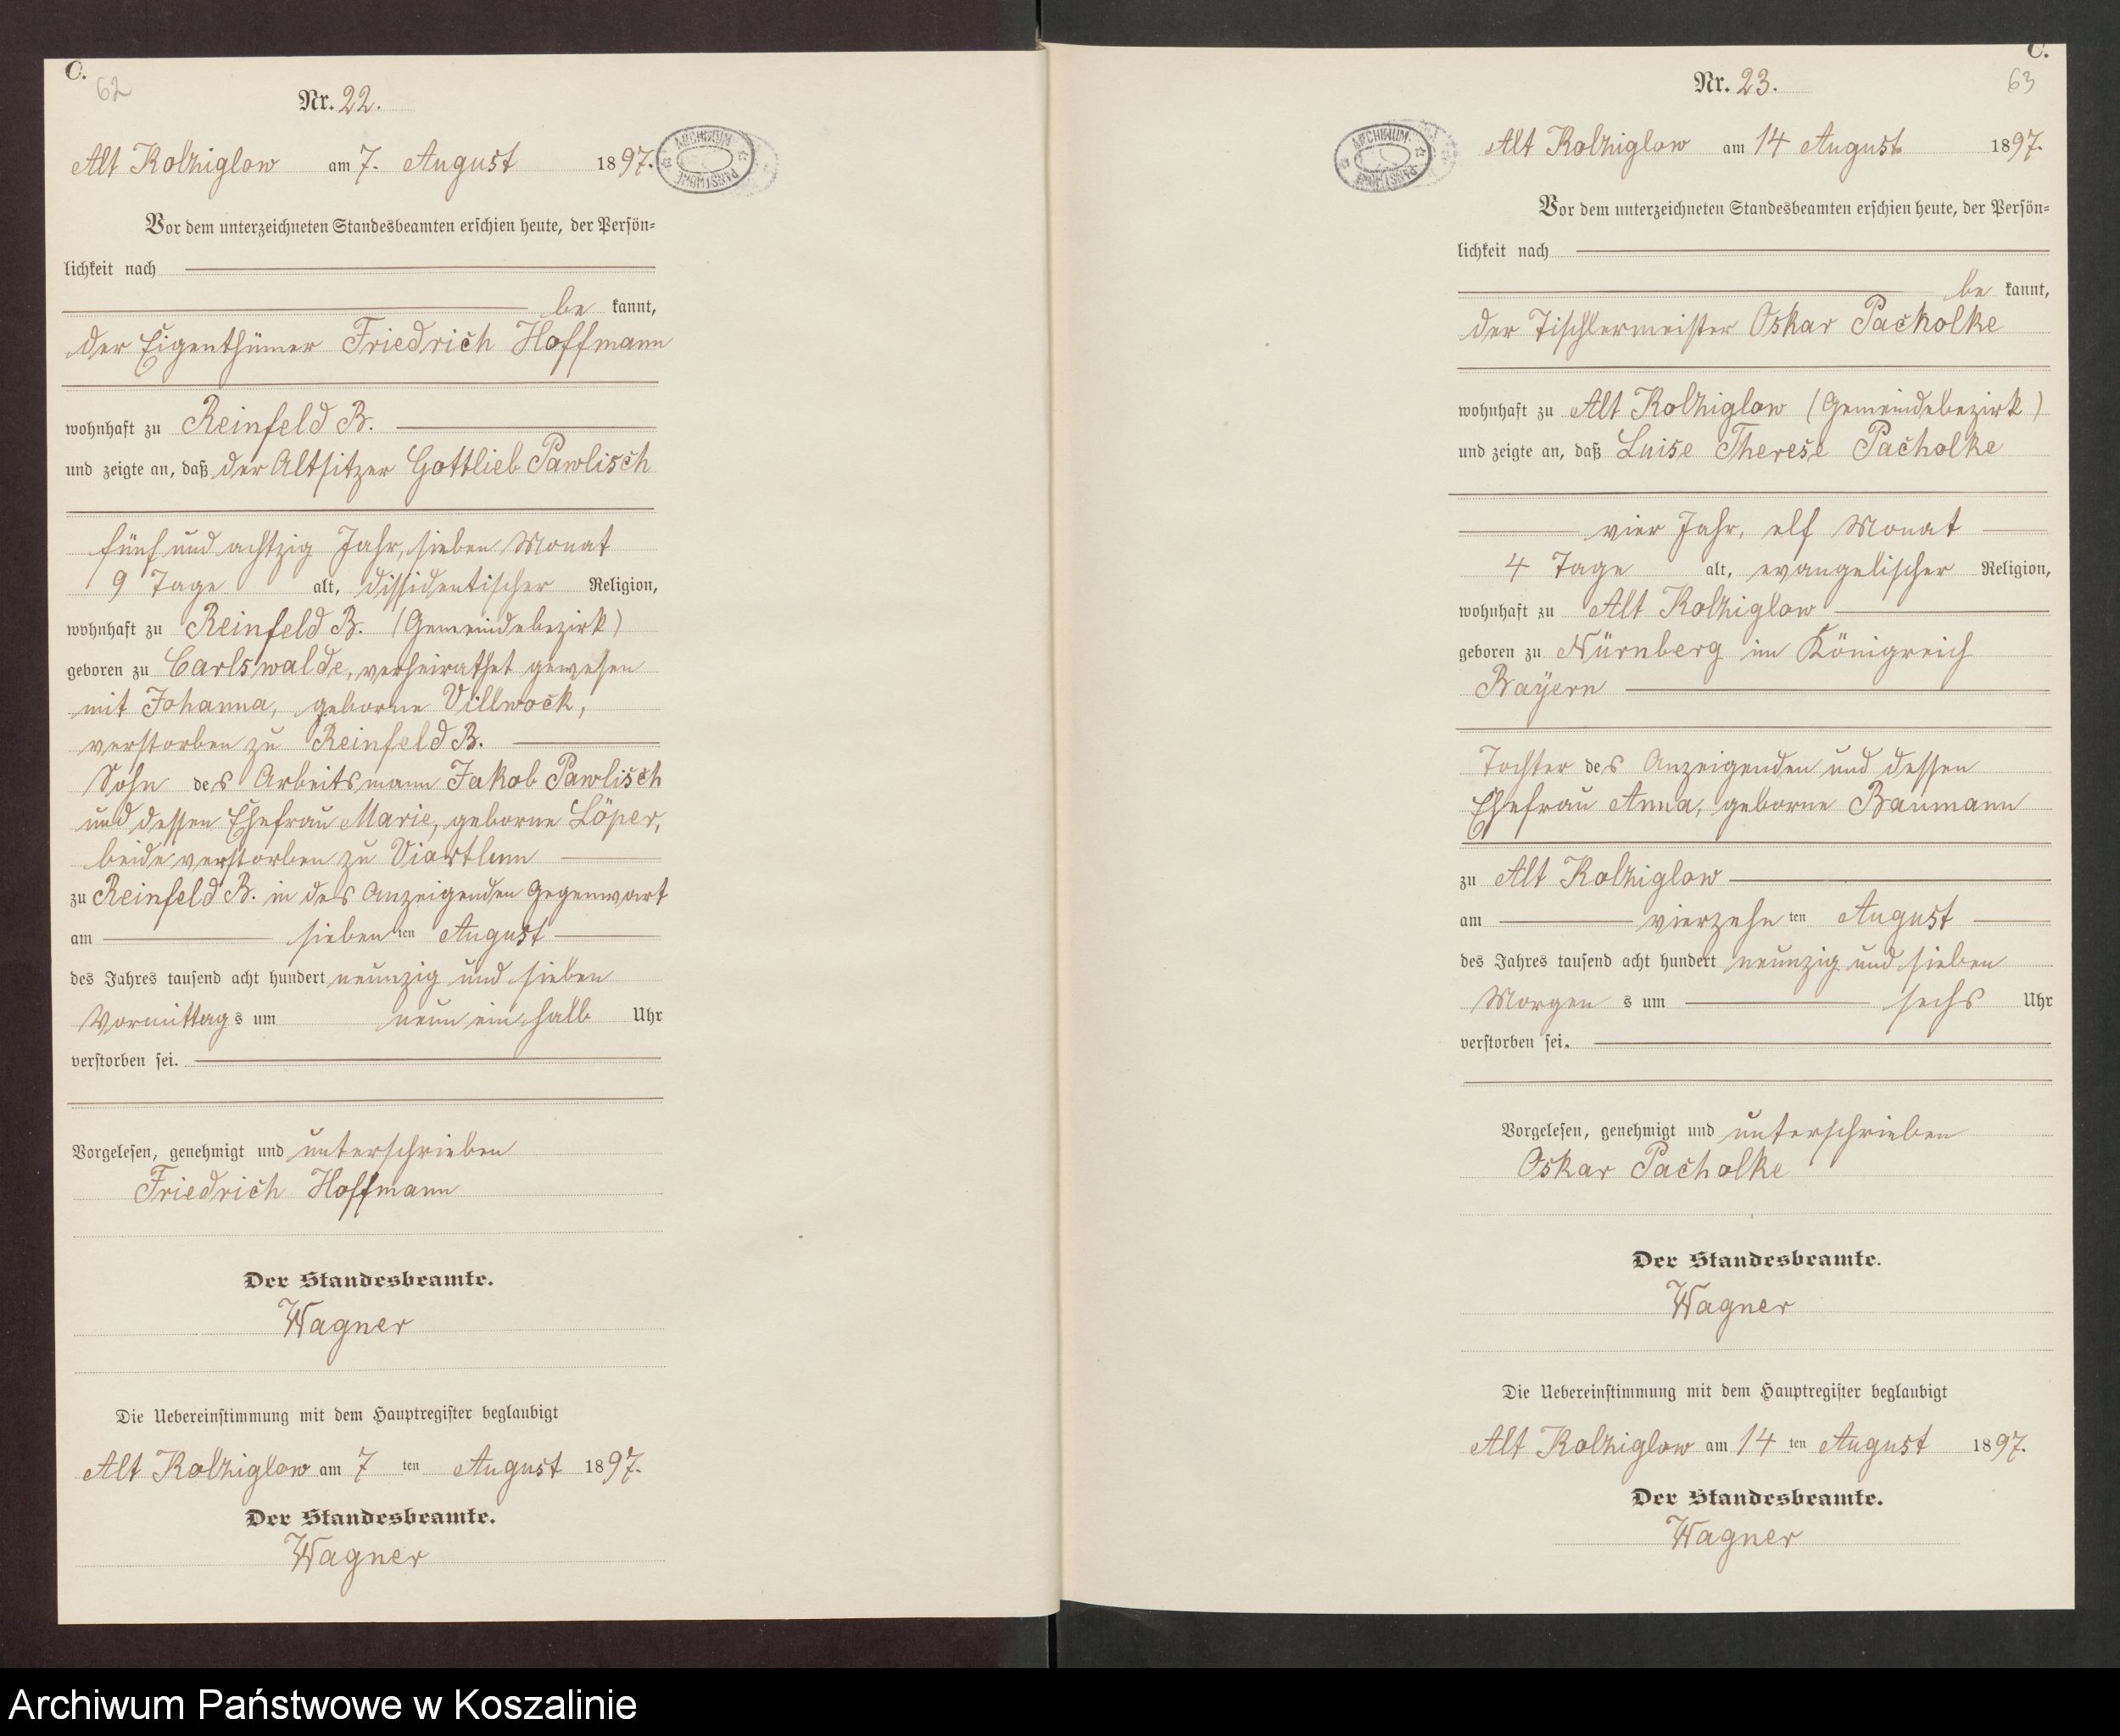 C.
62
Nr. 22.
Alt Kolziglow am 7. August 1897.
ARCHIWUM PAŃSTWOWE
Vor dem unterzeichneten Standesbeamten erschien heute, der Persön-
lichkeit nach
be kannt,
der Eigenthümer Friedrich Hoffmann
wohnhaft zu Reinfeld B.
und zeigte an, daß der Altsitzer Gottlieb Pawlisch
fünf und achtzig Jahr, sieben Monat
9 Tage alt, dissidentischer Religion,
wohnhaft zu Reinfeld B. (Gemeindebezirk)
geboren zu Carlswalde, verheirathet gewesen
mit Johanna, geborne Villwock,
verstorben zu Reinfeld B.
Sohn des Arbeitsmann Jakob Pawlisch
und dessen Ehefrau Marie, geborne Löper,
beide verstorben zu Viartlum
zu Reinfeld B. in des Anzeigenden Gegenwart
am sieben ten August
des Jahres tausend acht hundert neunzig und sieben
Vormittag s um neun ein halb Uhr
verstorben sei.
Vorgelesen, genehmigt und unterschrieben
Friedrich Hoffmann
Der Standesbeamte.
Wagner
Die Uebereinstimmung mit dem Hauptregister beglaubigt
Alt Kolziglow am 7 ten August 1897.
Der Standesbeamte.
Wagner
C.
63
Nr. 23.
ARCHIWUM PAŃSTWOWE
Alt Kolziglow am 14 August 1897.
Vor dem unterzeichneten Standesbeamten erschien heute, der Persön-
lichkeit nach
be kannt,
der Tischlermeister Oskar Pacholke
wohnhaft zu Alt Kolziglow (Gemeindebezirk)
und zeigte an, daß Luise Therese Pacholke
vier Jahr, elf Monat
4 Tage alt, evangelischer Religion,
wohnhaft zu Alt Kolziglow
geboren zu Nürnberg im Königreich
Bayern
Tochter des Anzeigenden und dessen
Ehefrau Anna, geborne Baumann
zu Alt Kolziglow
am vierzehn ten August
des Jahres tausend acht hundert neunzig und sieben
Morgen s um sechs Uhr
verstorben sei.
Vorgelesen, genehmigt und unterschrieben
Oskar Pacholke
Der Standesbeamte.
Wagner
Die Uebereinstimmung mit dem Hauptregister beglaubigt
Alt Kolziglow am 14 ten August 1897.
Der Standesbeamte.
Wagner
Archiwum Państwowe w Koszalinie